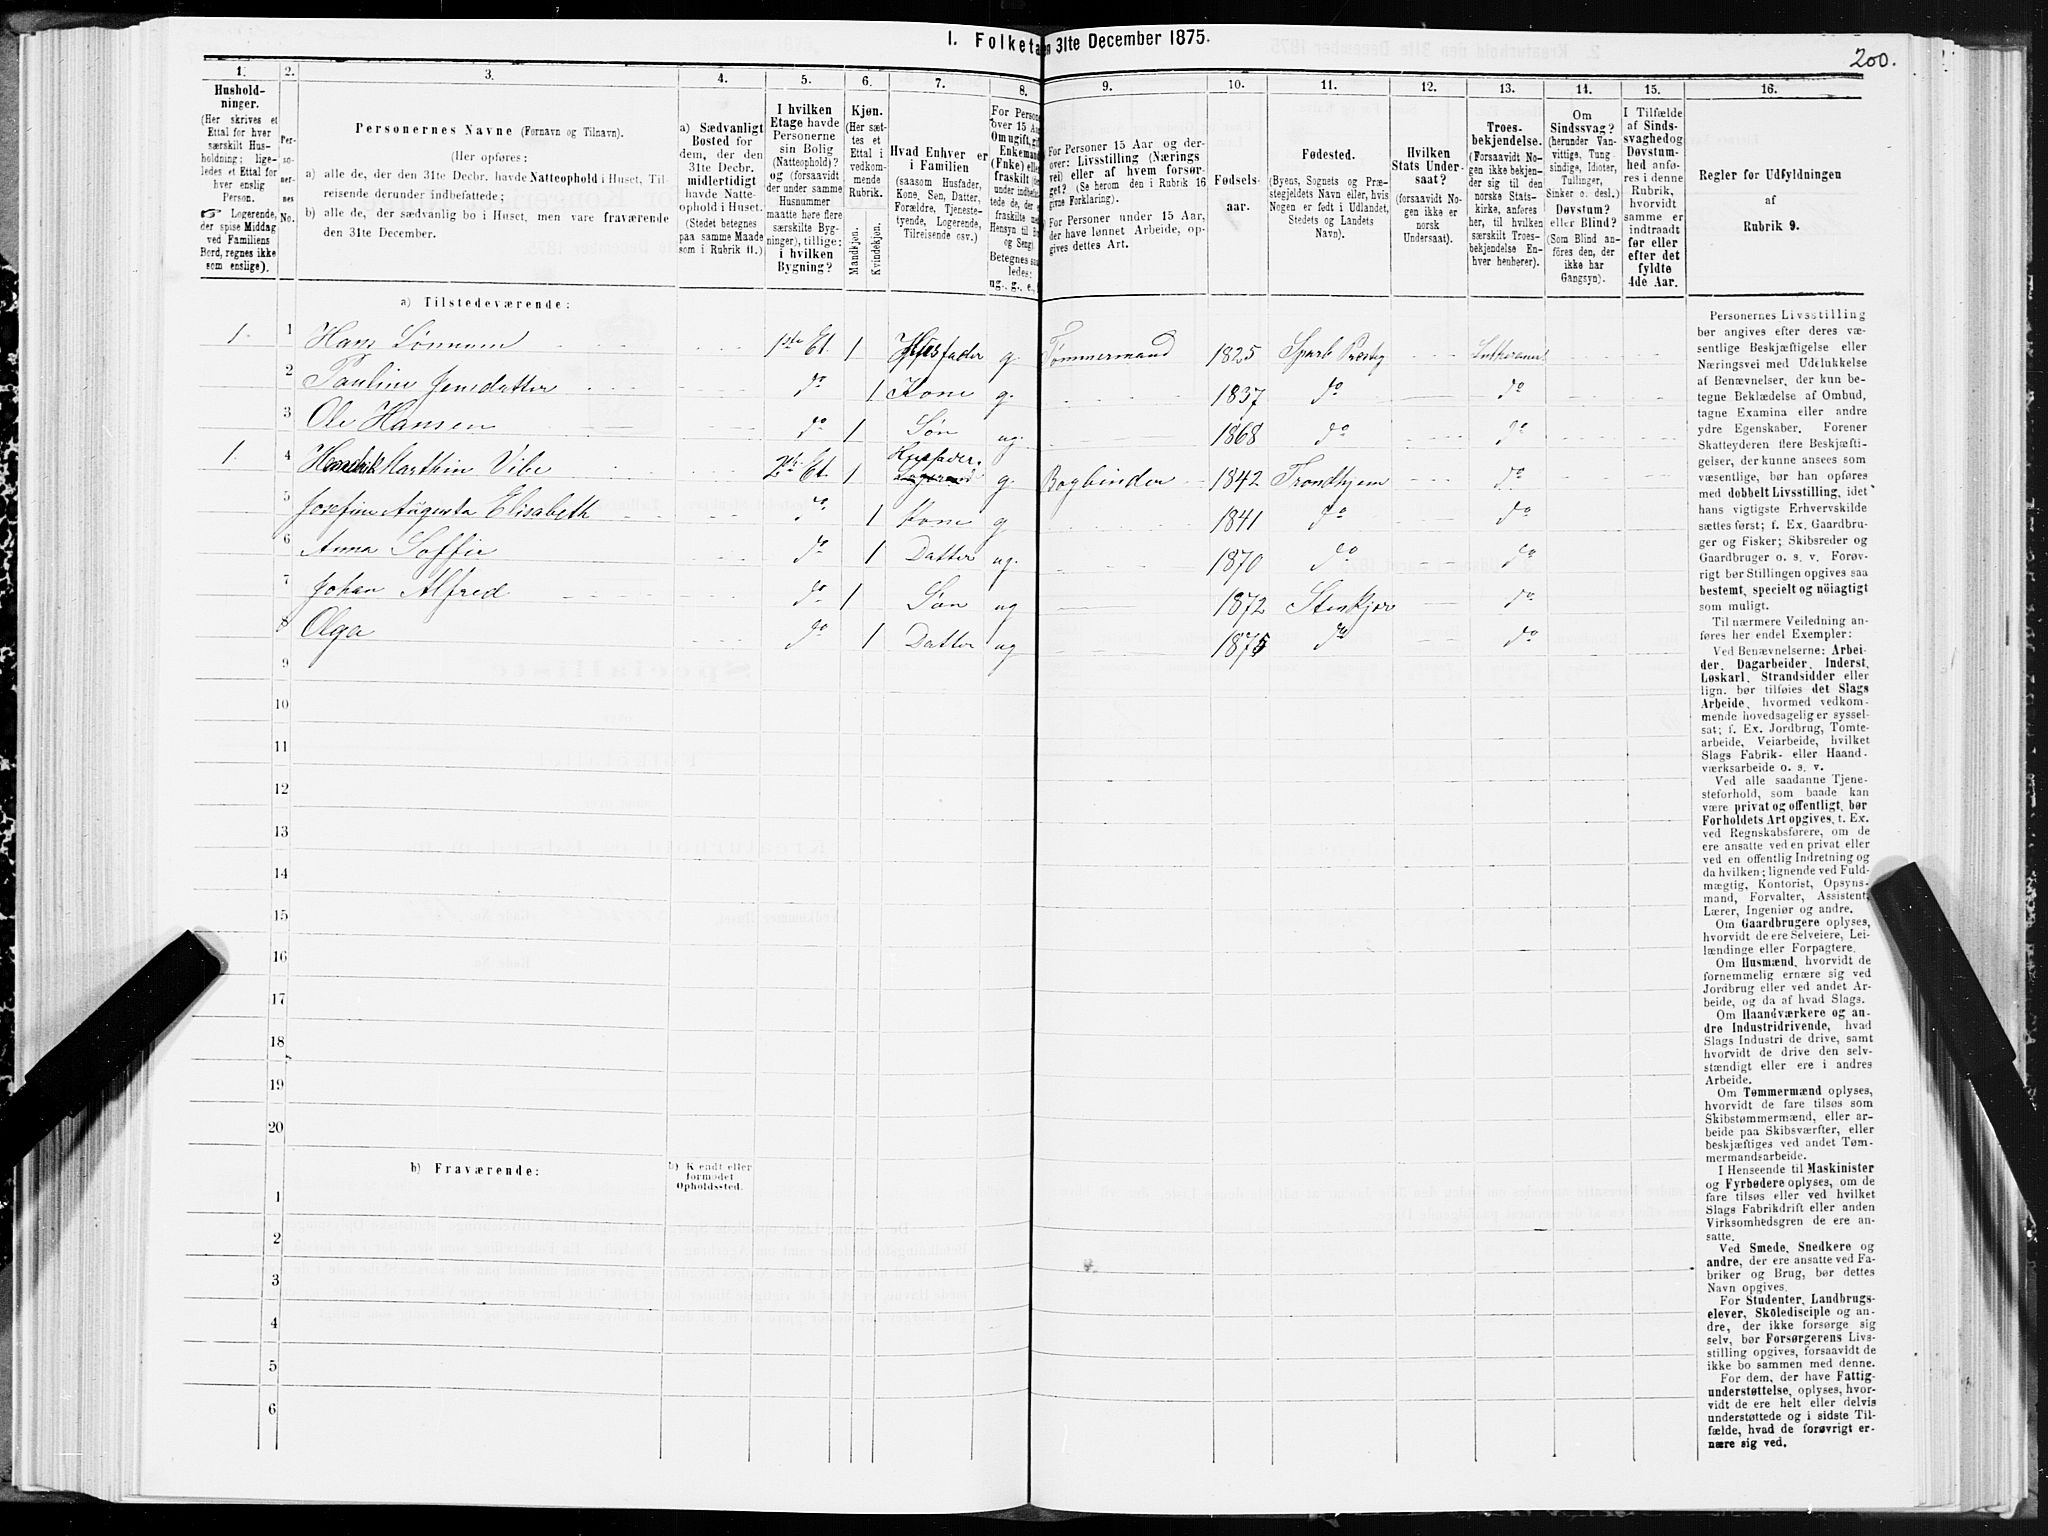 200.
1. Folketa en 31te December 1875.
1. 2. 3. 4. 5. 6. 7. 8. 9. 10. 11. 12. 13. 14. 15. 16.
Hushold-
ninger.
(Her skrives et
Ettal for hver
særskilt Hus-
holdning; lige-
ledes et Ettal for
hver enslig
Person.
Logerende,
der spise Middag
ved Familiens
Bord, regnes ikke
som enslige).
Per-
so-
ner-
nes
No.
Personernes Navne (Fornavn og Tilnavn).
(Her opføres:
a) alle de, der den 31te Decbr. havde Natteophold i Huset, Til-
reisende derunder indbefattede;
b) alle de, der sædvanlig bo i Huset, men vare fraværende
den 31te December.
a) Sædvanligt
Bosted for
dem, der den
31te Decbr.
midlertidigt
havde Natte-
ophold i Huset.
(Stedet betegnes
paa samme Maade
som i Rubrik 11.)
I hvilken
Etage havde
Personerne
sin Bolig
(Natteophold)?
og (forsaavidt
der under samme
Husnummer
maatte høre flere
særskilte Byg-
ninger), tillige:
i hvilken
Bygning?
Kjøn.
(Her sæt-
tes et
Ettal i
vedkom-
mende
Rubrik.
Mandkjøn.
Kvindekjøn.
Hvad Enhver er
i Familien
(saasom Husfader,
Kone, Søn, Datter,
Forældre, Tjeneste-
tyende, Logerende,
Tilreisende osv.)
For Person
over 15 Aa
Om ugift, gif
Enkemand
(Enke) elle
fraskilt (de
under indbefa
tede de, der
fraskilte m
Hensyn til B
og Seng).
Betegnes saa
ledes:
ug., g., e.,
For Personer 15 Aar og der-
over: Livsstilling (Nærings
vei) eller af hvem forsør-
get? (Se herom den i Rubrik 16
givne Forklaring).
For Personer under 15 Aar,
der have lønnet Arbeide, op-
gives dettes Art.
Fødsels-
aar.
Fødested.
(Byens, Sognets og Præ-
stegjeldets Navn eller, hvis
Nogen er født i Udlandet,
Stedets og Landets
Navn).
Hvilken
Stats Under-
saat?
(forsaavidt No-
gen ikke er
norsk
Undersaat).
Troes-
bekjendelse.
(Forsaavidt No-
gen ikke bekjen-
der sig til den
norske Stats-
kirke, anføres
her, til hvilken
særskilt Troes-
bekjendelse En-
hver henhører).
Om
Sindssvag?
(herunder Van-
vittige, Tung-
sindige, Idioter,
Tullinger,
Sinker o. desl.)
Døvstum?
eller Blind?
(Som Blind an-
føres den, der
ikke har
Gangsyn).
I Tilfælde
af Sinds-
svaghed og
Døvstum-
hed anfø-
res i denne
Rubrik,
hvorvidt
samme er
indtraadt
før eller
efter det
fyldte
4de Aar.
Regler for Udfyldningen
af
Rubrik 9.
a) Tilstedeværende:
1. 1 Hans Lønnum 1ste Et. 1 Husfader g. Tømmermand 1825 Sparb Præsteg Lutheraner
2 Pauline Jensdatter do 1 Kone g. 1837 do do
3 Ole Hansen do 1 Søn ug. 1868 do do
1. 4 Marthin Vibe 2den Et. 1 Husfader g. Bogbinder 1842 Trondhjem do
5 Josefine Augusta Elisabeth do 1 Kone g 1841 do do
6 Anna Soffie do 1 Datter ug. 1870 do do
7 Johan Alfred do 1 Søn ug 1872 Stenkjær do
8 Olga do 1 Datter ug 1875 do do
9
10
11
12
13
14
15
16
17
18
19
20
b) Fraværende:
b) Kjendt eller
formodet
Opholdssted.
1
2
3
4
5
6
Personernes Livsstilling
bør angives efter deres væ-
sentlige Beskjæftigelse eller
Næringsvei med Udelukkelse
af Benævnelser, der kun be-
tegne Beklædelse af Ombud,
tagne Examina eller andre
ydre Egenskaber. Forener
Skatteyderen flere Beskjæfti-
gelser, der kunne ansees som
væsentlige, bør han opføres
med dobbelt Livsstilling, idet
hans vigtigste Erhvervskilde
sættes først; f. Ex. Gaardbru-
ger og Fisker; Skibsreder og
Gaardbruger o. s. v. Forøv-
rigt bør Stillingen opgives saa
bestemt, specielt og nöiagtigt
som muligt.
Til nærmere Veiledning an-
føres her endel Exempler:
Ved Benævnelserne: Arbei-
der, Dagarbeider, Inderst,
Løskarl, Strandsidder eller
lign. bør tilføies det Slags
Arbeide, hvormed vedkom-
mende hovedsagelig er syssel-
sat; f. Ex. Jordbrug, Tomte-
arbeide, Veiarbeide, hvilket
Slags Fabrik- eller Haand-
værksarbeide o. s. v.
Ved alle saadanne Tjene-
steforhold, som baade kan
være privat og offentligt, bør
Forholdets Art opgives, t. Ex.
ved Regnskabsførere, om de
ere ansatte ved en privat eller
ved en offentlig Indretning og
da hvilken; lignende ved Fuld-
mægtig, Kontorist, Opsyns-
mand, Forvalter, Assistent,
Lærer, Ingeniør og andre.
Om Gaardbrugere oplyses,
hvorvidt de ere Selveiere, Lei-
lændinge eller Forpagtere.
Om Husmænd, hvorvidt de
fornemmelig ernære sig ved
Jordbrug eller ved andet Ar-
beide, og da af hvad Slags.
Om Haandværkere og an-
dre Industridrivende, hvad
Slags Industri de drive, samt
hvorvidt de drive den selv-
stændigt eller ere i andres
Arbeide.
Om Tømmermænd oplyses,
hvorvidt de fare tilsøs som
Skibstømmermænd, eller ar-
beide paa Skibsværfter, eller
beskjæftiges ved andet Tøm-
mermandsarbeide.
I Henseende til Maskinister
og Fyrbødere oplyses, om de
fare tilsøs eller ved hvilket
Slags Fabrikdrift eller anden
Virksomhedsgren de ere an-
satte.
Ved Smede, Snedkere og
andre, der ere ansatte ved Fa-
briker og Brug, bør dettes
Navn opgives.
For Studenter, Landbrugs-
elever, Skoledisciple og an-
dre, der ikke forsørge sig
selv, bør Forsørgerens Livs-
stilling opgives, forsaavidt de
ikke bo sammen med denne.
For dem, der have Fattig-
understøttelse, oplyses, hvor-
vidt de ere helt eller delvis
understøttede og i sidste Til-
fælde, hvad de forøvrigt er-
nære sig ved.